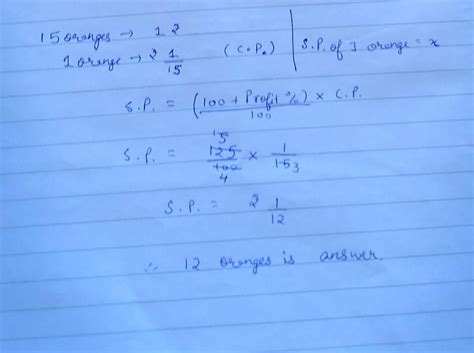 15 oranges → ₹ 1 2
1 orange → ₹ 1/15 (C.P.) | S.P. of 1 orange = x
S.P. = (100 + Profit %)/100 × C.P.
S.P. = 125/100 × 1/15 5 4 3
S.P. = ₹ 1/12
∴ 12 oranges is answer.